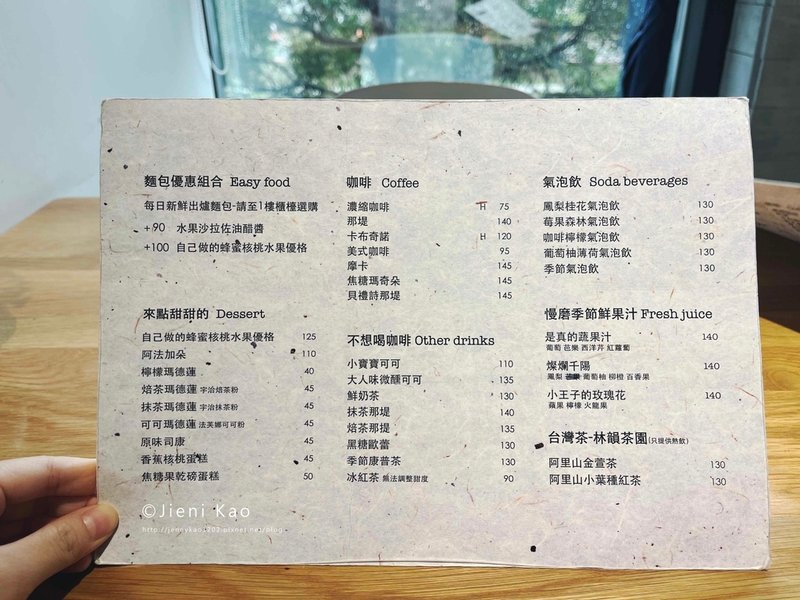 麵包優惠組合 Easy food
每日新鮮出爐麵包-請至1樓櫃檯選購
+90 水果沙拉佐油醋醬
+100 自己做的蜂蜜核桃水果優格
來點甜甜的 Dessert
自己做的蜂蜜核桃水果優格 125
阿法加朵 110
檸檬瑪德蓮 40
焙茶瑪德蓮 宇治焙茶粉 45
抹茶瑪德蓮 宇治抹茶粉 45
可可瑪德蓮 法芙娜可可粉 45
原味司康 45
香蕉核桃蛋糕 45
焦糖果乾磅蛋糕 50
咖啡 Coffee
濃縮咖啡 H 75
那堤 140
卡布奇諾 H 120
美式咖啡 95
摩卡 145
焦糖瑪奇朵 145
貝禮詩那堤 145
不想喝咖啡 Other drinks
小寶寶可可 110
大人味微醺可可 135
鮮奶茶 130
抹茶那堤 140
焙茶那堤 135
黑糖歐蕾 130
季節康普茶 130
冰紅茶 無法調整甜度 90
氣泡飲 Soda beverages
鳳梨桂花氣泡飲 130
莓果森林氣泡飲 130
咖啡檸檬氣泡飲 130
葡萄柚薄荷氣泡飲 130
季節氣泡飲 130
慢磨季節鮮果汁 Fresh juice
是真的蔬果汁 140
葡萄 芭樂 西洋芹 紅蘿蔔
燦爛千陽 140
鳳梨 葡萄柚 柳橙 百香果
小王子的玫瑰花 140
蘋果 檸檬 火龍果
台灣茶-林韻茶園(只提供熱飲)
阿里山金萱茶 130
阿里山小葉種紅茶 130
©Jieni Kao